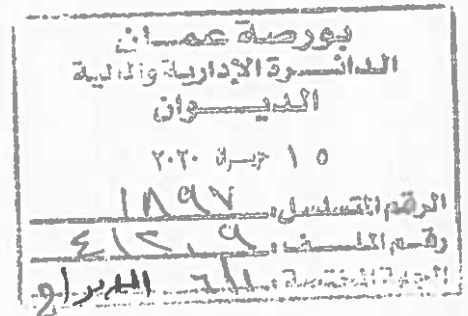 بورصة عمان
الدائرة الإدارية والمالية
الديوان
١٥ حزيران ٢٠٢٠
الرقم المتسلسل: ١٨٩٧
رقم الملف:
الجهة المختصة: